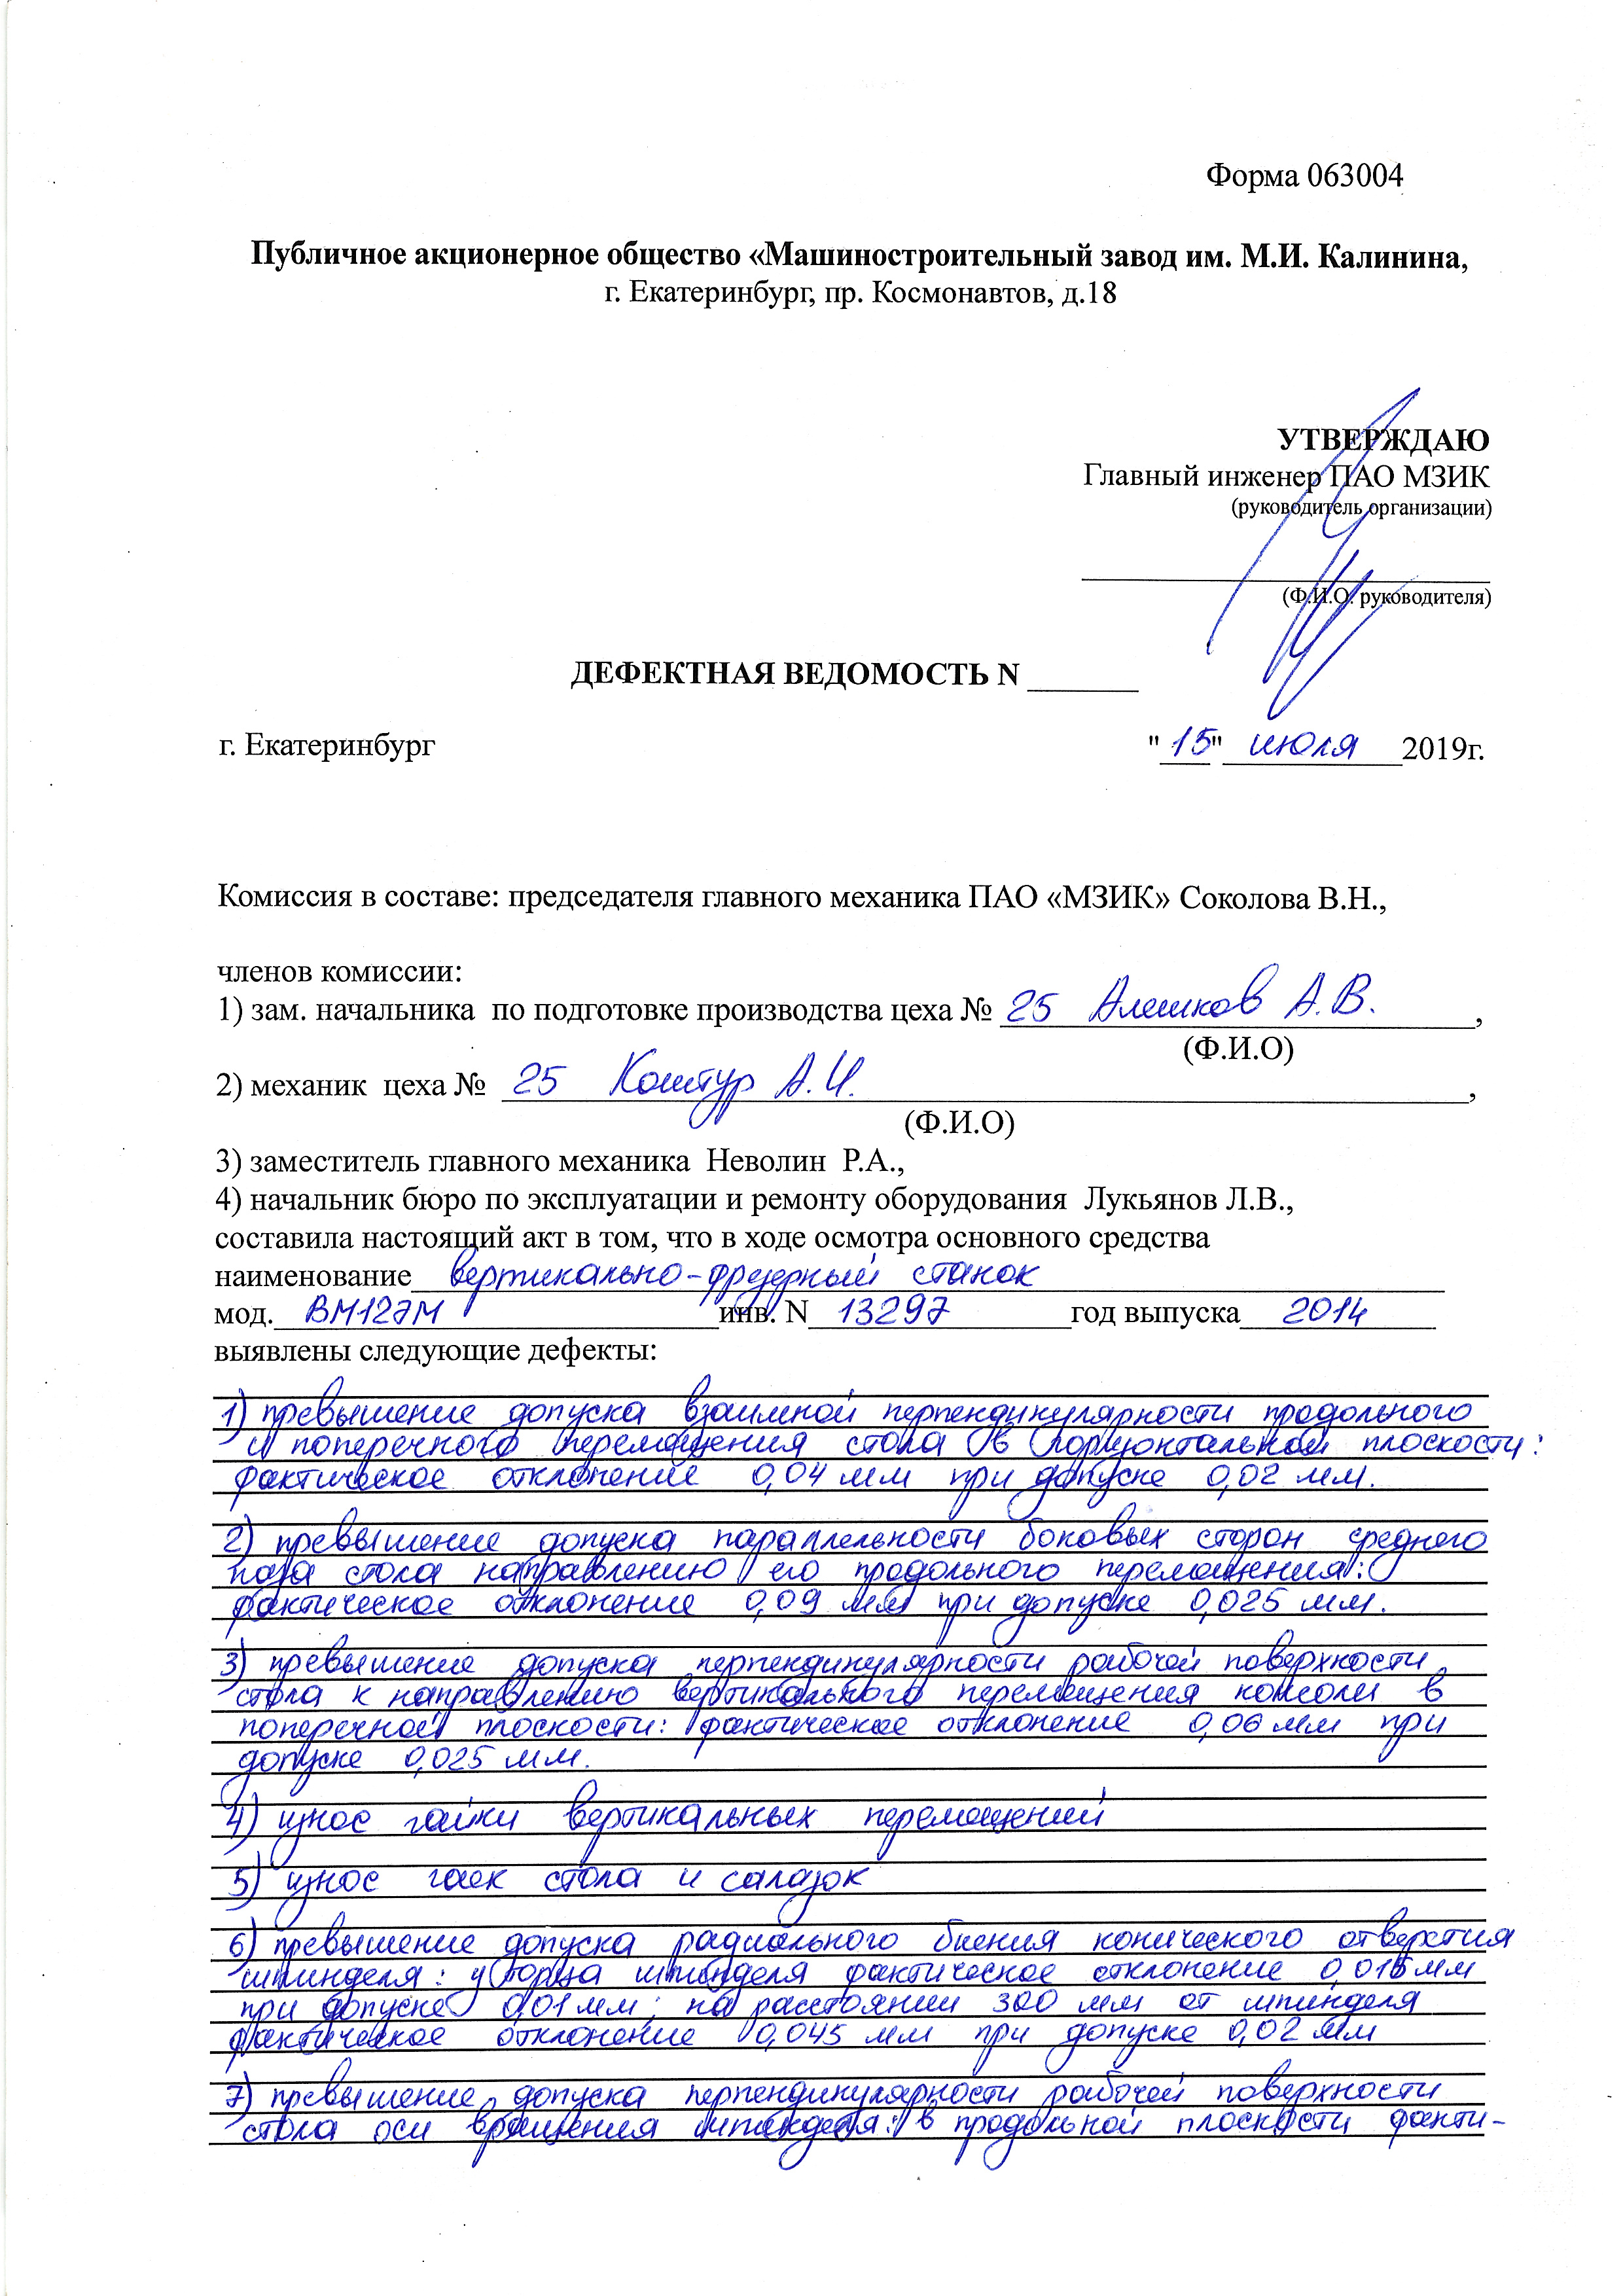 Форма 063004
Публичное акционерное общество «Машиностроительный завод им. М.И. Калинина,
г. Екатеринбург, пр. Космонавтов, д.18
УТВЕРЖДАЮ
Главный инженер ПАО МЗИК
(руководитель организации)
(Ф.И.О. руководителя)
ДЕФЕКТНАЯ ВЕДОМОСТЬ N
г. Екатеринбург "15" июля 2019г.
Комиссия в составе: председателя главного механика ПАО «МЗИК» Соколова В.Н.,
членов комиссии:
1) зам. начальника по подготовке производства цеха № 25 Алешков А.В.,
(Ф.И.О)
2) механик цеха № 25 Коштур А.И.,
(Ф.И.О)
3) заместитель главного механика Неволин Р.А.,
4) начальник бюро по эксплуатации и ремонту оборудования Лукьянов Л.В.,
составила настоящий акт в том, что в ходе осмотра основного средства
наименование вертикально-фрезерный станок
мод. ВМ127М инв. N 13297 год выпуска 2014
выявлены следующие дефекты:
1) превышение допуска взаимной перпендикулярности продольного
и поперечного перемещения стола в горизонтальной плоскости:
фактическое отклонение 0,04 мм при допуске 0,02 мм.
2) превышение допуска параллельности боковых сторон среднего
паза стола направлению его продольного перемещения:
фактическое отклонение 0,09 мм при допуске 0,025 мм.
3) превышение допуска перпендикулярности рабочей поверхности
стола к направлению вертикального перемещения консоли в
поперечной плоскости: фактическое отклонение 0,06 мм при
допуске 0,025 мм.
4) износ гайки вертикальных перемещений
5) износ гаек стола и салазок
6) превышение допуска радиального биения конического отверстия
шпинделя: у торца шпинделя фактическое отклонение 0,015 мм
при допуске 0,01 мм; на расстоянии 300 мм от шпинделя
фактическое отклонение 0,045 мм при допуске 0,02 мм
7) превышение допуска перпендикулярности рабочей поверхности
стола оси вращения шпинделя: в продольной плоскости факти-